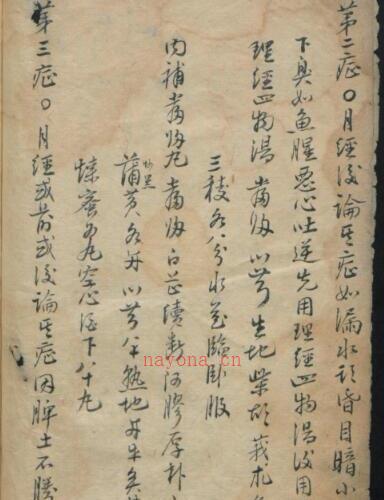 第二症〇月經後論其症如漏水頭昏目暗小
下臭如魚腥惡心吐逆先用理經四物湯後用
理經四物湯 當歸 川芎 生地 柴胡 莪朮
三稜各八分水煎臨臥服
內補當歸丸 當歸 白芷 續斷 阿膠 厚朴
蒲黃各 川芎 熟地
煉蜜為丸空心酒下八十丸
第三症〇月經或前或後論其症因脾土不勝
nayona.cn